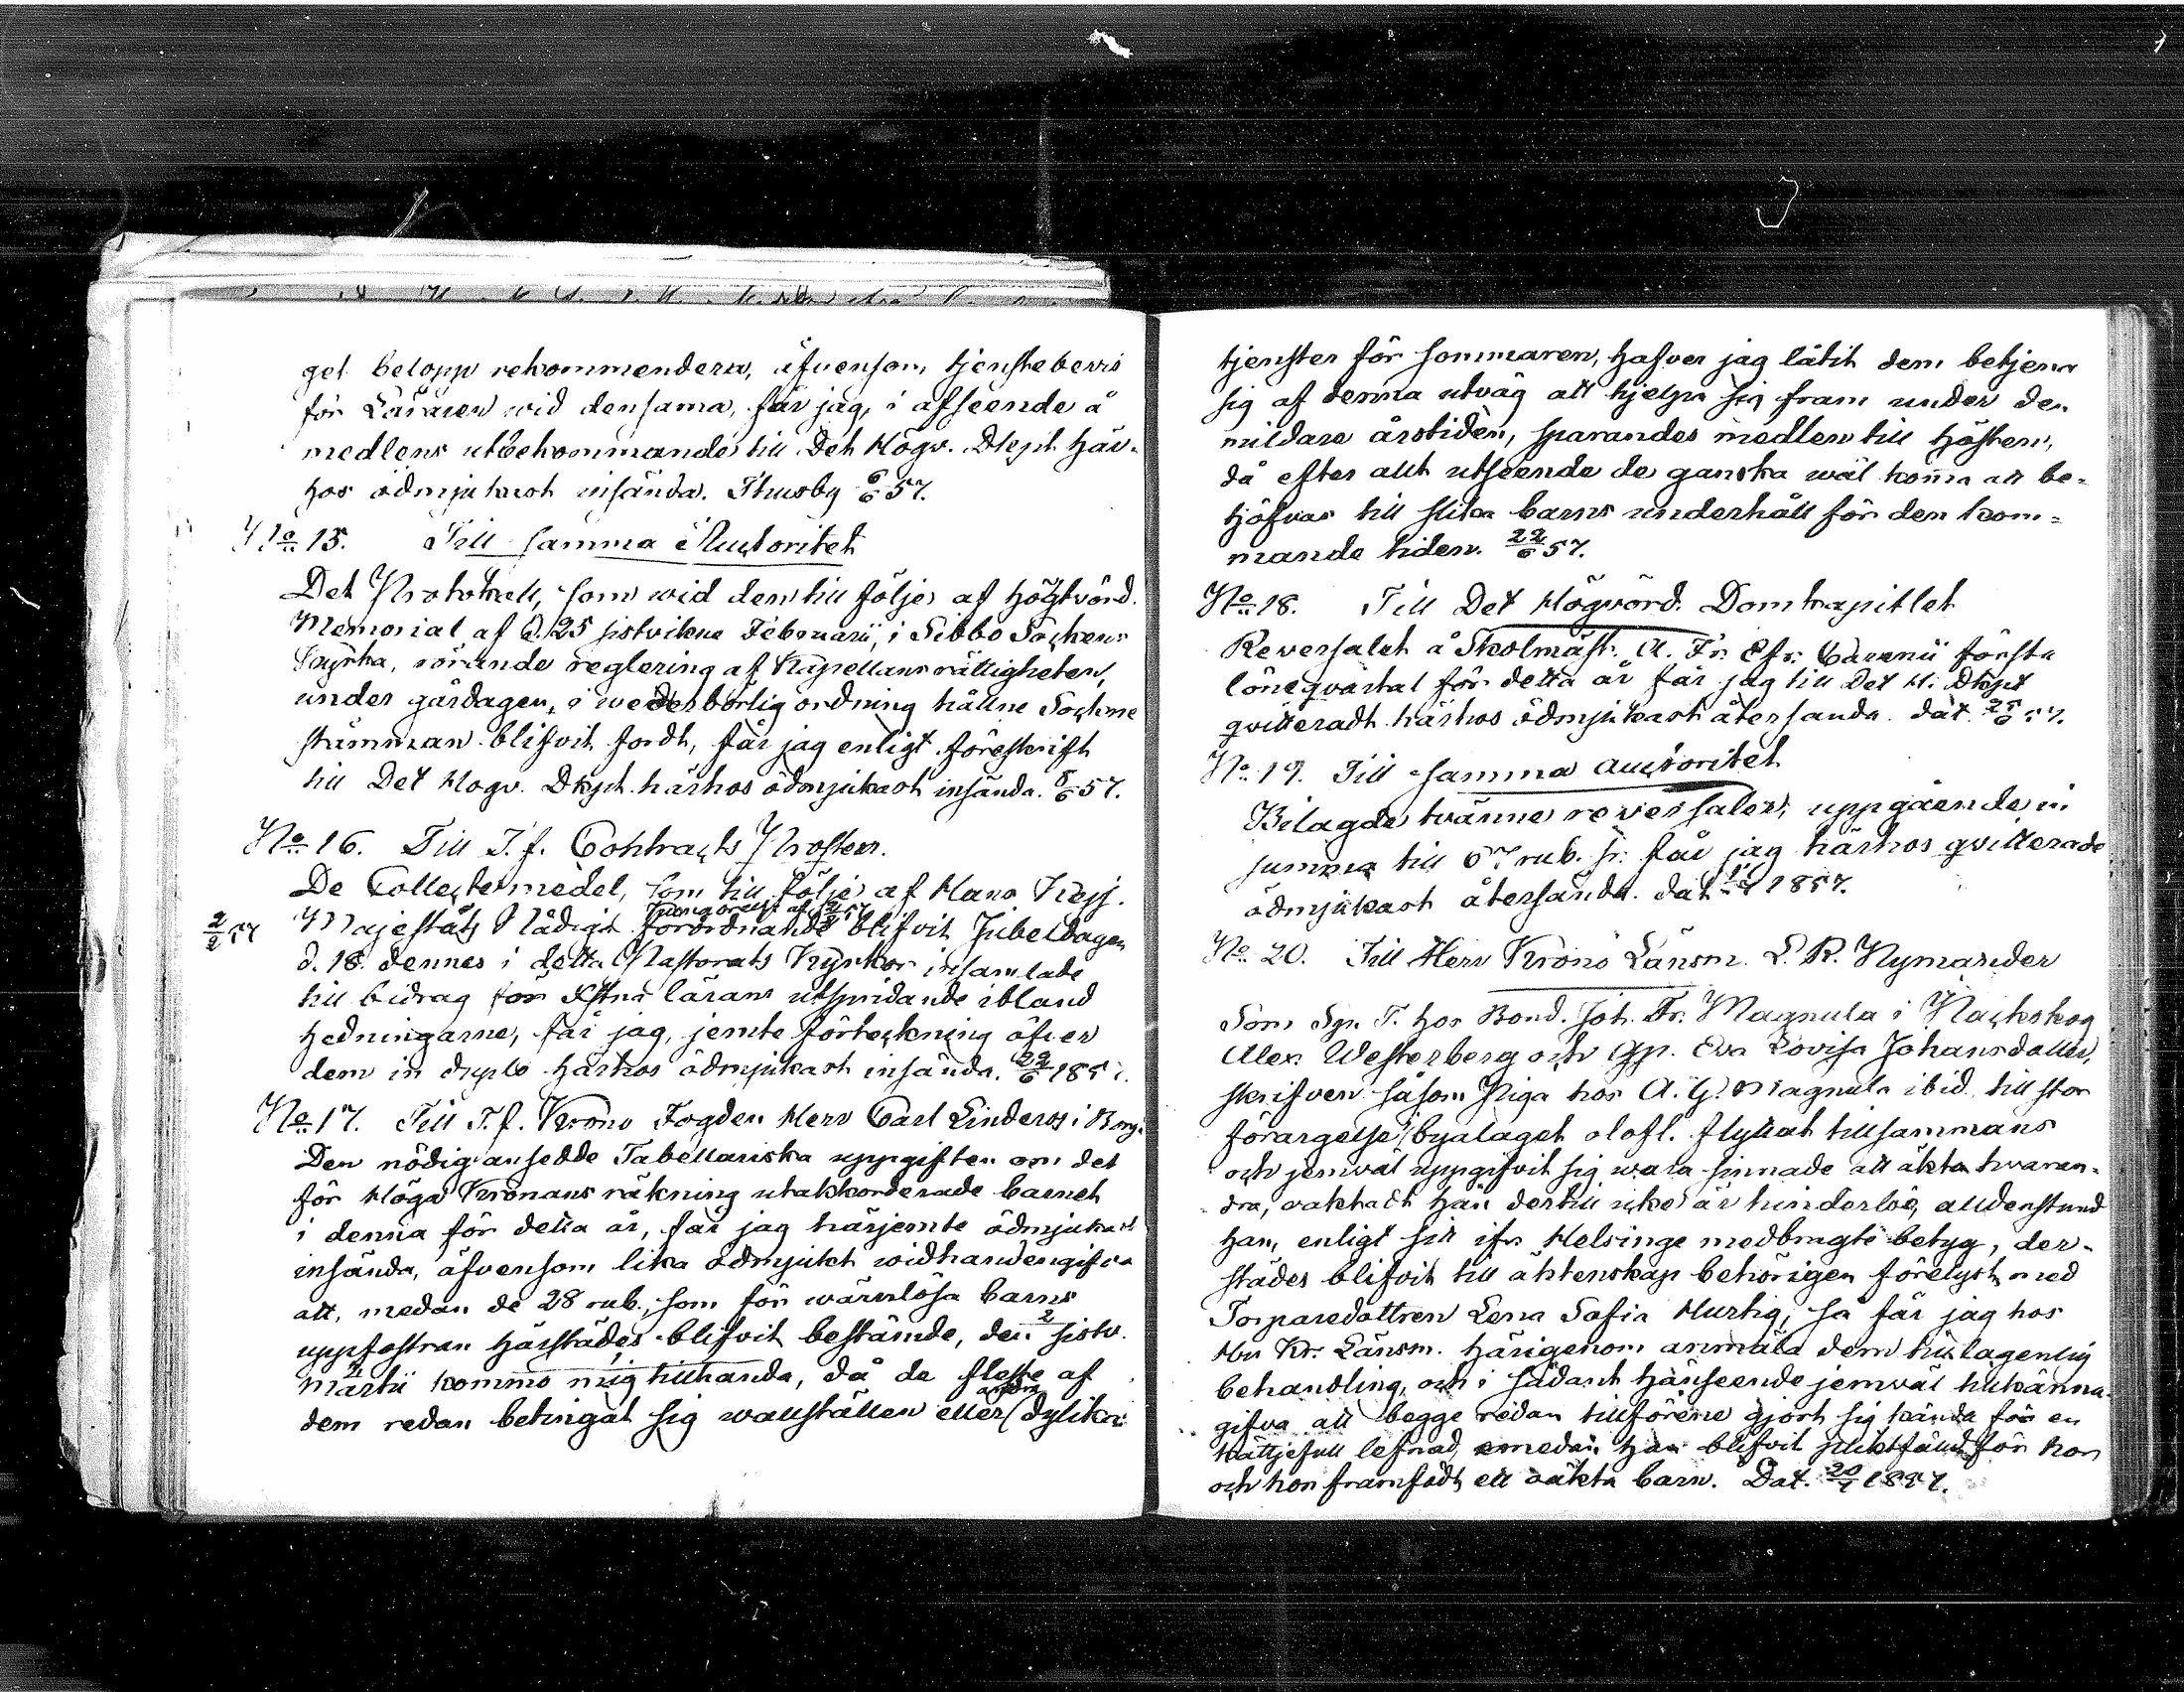 get belopp rekommendera, äfvensom tjenstebevis
för Läraren wid densama, får jag, i afseende å
medlens utbekommande till Det Högv. Dkpit här-
hos ödmjukast insända. Thusby 6/6 57.
No 15. Till samma Auctoritet
Det Protokoll, som wid den till följe af Högtvörd.
Memorial af d. 25 sistvikne Februarii, i Sibbo Sockens
Kyrka, rörande reglering af Kapellans rättigheter,
under gårdagen, i wederbörlig ordning hållne Sockne
stämman blifvit fördt, får jag enligt föreskrift
till Det Högv. Dkpit. härhos ödmjukast insända. 8/6 57.
No 16. Till T. f. Contracts Prosten.
De Collectemedel, som till följe af Hans Kejs.
kungörelse af 2/2 57
2/2 57 Majestäts Nådiga Förordnande blifvit Jubeldagen
d. 18. dennes i detta Pastorats Kyrkor insamlade
till bidrag för Xstna lärans utspridande ibland
Hedningarne, får jag, jemte förteckning öfver
dem in duplo härhos ödmjukast insända. 22/6 1857.
No 17. Till T. f. Krono Fogden Herr Carl Linderos i Borgå
Den nödig ansedde Tabellariska uppgiften om det
för Höga Kronans räkning utakkorderade barnet
i denna för detta år, får jag härjemte ödmjukast
insända, äfvensom lika ödmjukt widhandengifva
att, medan de 28 rub., som för wärnlösa barns
uppfostran härstädes blifvit bestämde, den 2 sistv.
Martii kommo mig tillhanda, då de fleste af
dem redan betingat sig wallställen eller andra dylika
tjenster för sommaren, hafver jag låtit dem betjena
sig af denna utväg att hjelpa sig fram under den
mildare årstiden, sparandes medlen till Hösten,
då efter allt utseende de ganska wäl komma att be-
höfvas till slika barns underhåll för den kom-
mande tiden. 22/6 57.
No 18. Till Det Högvörd. Domkapitlet
Reversalet å Skolmäst. A. Fr. Efr. första
lönegvartal för detta år får jag till Det H. Dkpt
gvitteradt härhos ödmjukast återsända. dat. 25/6 57.
No 19. Till samma Auctoritet
Bilagde tvänne reversaler, uppgående i
summa till 67 rub. sr. får jag härhos gvitterade
ödmjukast återsända. dat 1857.
No 20. Till Herr Krono Länsm. L. R. Nymander
Som Dr. T. hos Bond. Joh. Fr. Magnula i Nackskog
Alex. Westerberg och Gp. Eva Lovisa Johansdotter,
skrifven såsom Piga hos A. G. Magnula ibid. till stor
förargelse i byalaget olofl. flyttat tillsammans
och jemväl uppgifvit sig wara sinnade att äkta hwaran-
dra, oaktadt han dertill icke är hinderlös, alldenstund
han, enligt sitt ifr. Helsinge medbragte betyg, der-
städes blifvit till äktenskap behörigen förelyst med
Torparedottren Lena Sofia Hurtig, så får jag hos
Hr Kr. Länsm. härigenom anmäla dem till lagenlig
behandling, och i sådant hänseende jemväl tillkänna-
gifva att begge redan tillförene gjort sig kända för en
kättjefull lefnad, emedan han blifvit pliktfälld för hor
och hon framfödt ett oäkta barn. Dat. 20/7 1857.